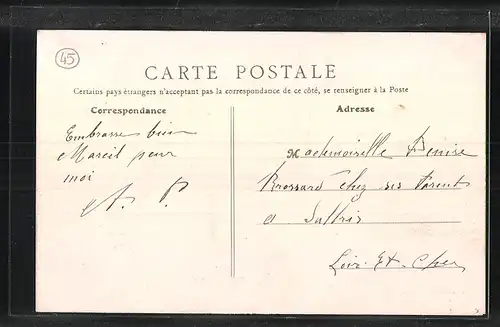 45
CARTE POSTALE
Certains pays étrangers n'acceptent pas la correspondance de ce côté, se renseigner à la Poste
Correspondance
Adresse
Embrasse bien
Marcil pour
moi
A. P.
Mademoiselle Denise
Brossard chez ses Parents
a Salbris
Loir-Et-Cher